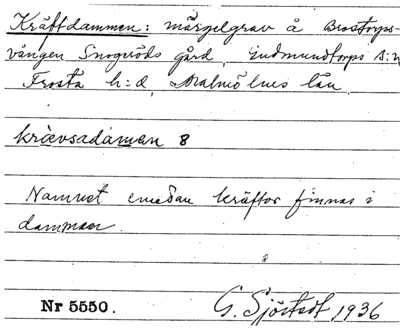 Kräftdammen: märgelgrav å Brostorps-
vången Snogröds gård, Gudmundtorps s:n
Frosta h:d, Malmöhus län
kræevsadamen 8
Namnet emedan kräftor finnas i
dammen.
Nr 5550. G. Sjöstedt 1936